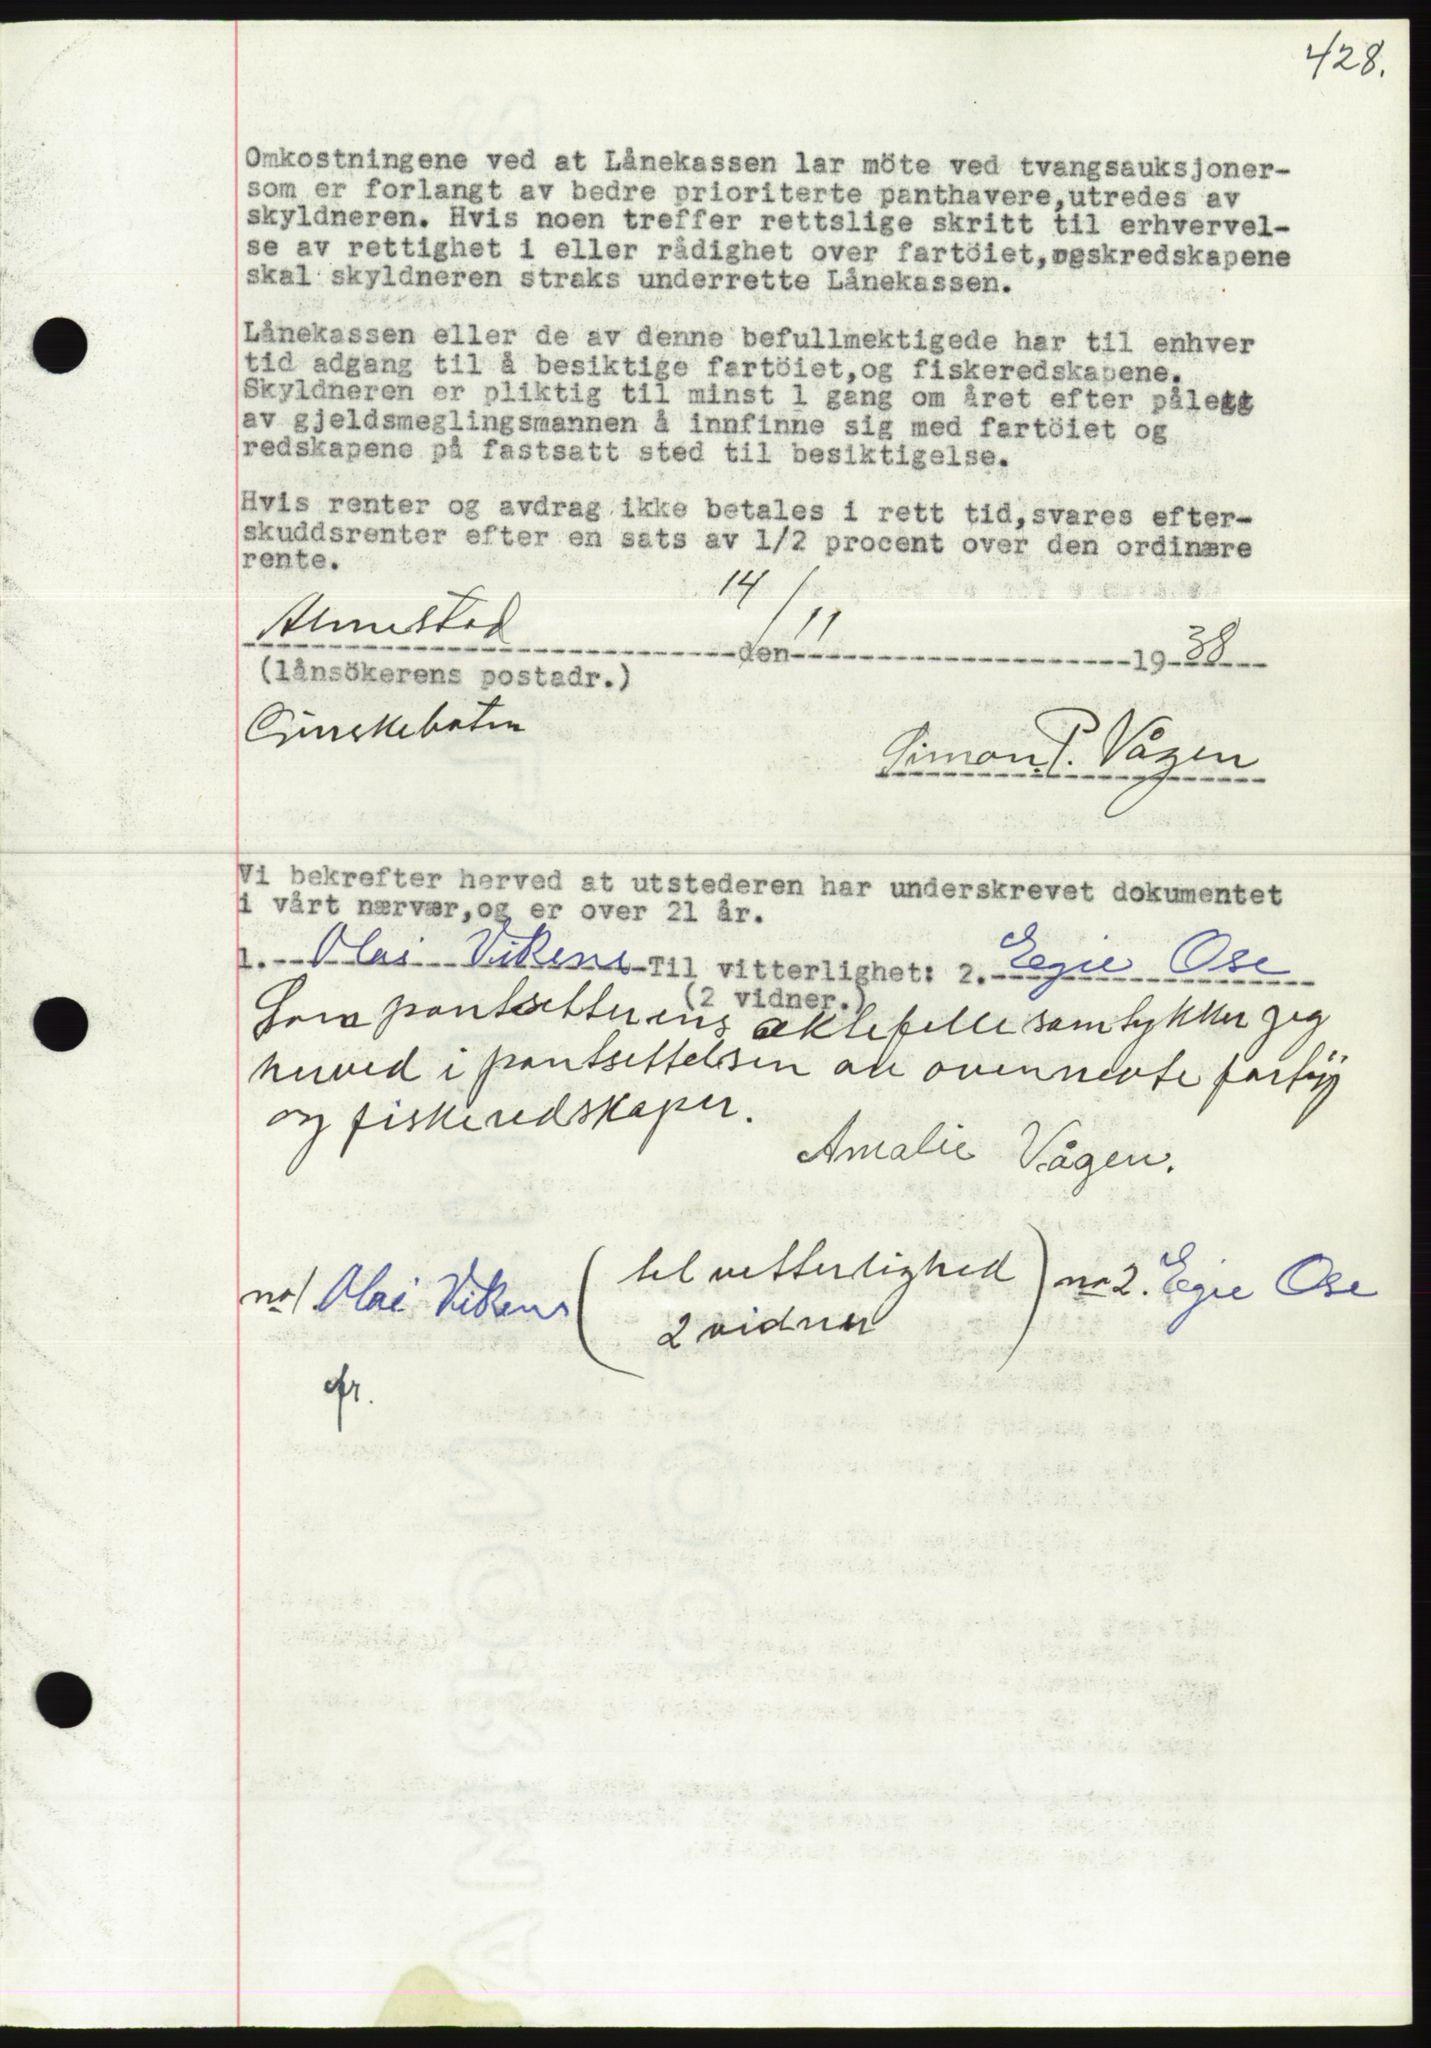 428.
Omkostningene ved at Lånekassen lar möte ved tvangsauksjoner-
som er forlangt av bedre prioriterte panthavere,utredes av
skyldneren. Hvis noen treffer rettslige skritt til erhvervel-
se av rettighet i eller rådighet over fartöiet,ogskredskapene
skal skyldneren straks underrette Lånekassen.
Lånekassen eller de av denne befullmektigede har til enhver
tid adgang til å besiktige fartöiet,og fiskeredskapene.
Skyldneren er pliktig til minst 1 gang om året efter pålegg
av gjeldsmeglingsmannen å innfinne sig med fartöiet og
redskapene på fastsatt sted til besiktigelse.
Hvis renter og avdrag ikke betales i rett tid,svares efter-
skuddsrenter efter en sats av 1/2 procent over den ordinære
rente.
Almestad den 14/11 1938
(lånsökerens postadr.)
Gurskebotn
Simon. P. Vågen
Vi bekrefter herved at utstederen har underskrevet dokumentet
i vårt nærvær,og er over 21 år.
1. Olai Vikens Til vitterlighet: 2. Ose
(2 vidner.)
Som pantsetterens æktefelle samtykker jeg
herved i pantsettelsen av ovennevte fartöy
og fiskeredskaper.
Amalie Vågen.
no 1 Olai Vikens ( til vitterlighed ) no 2. Ose
2 vidner